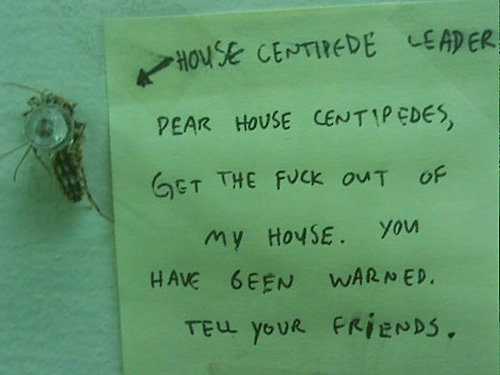 HOUSE CENTIPEDE LEADER
DEAR HOUSE CENTIPEDES,
GET THE FUCK OUT OF
MY HOUSE. YOU
HAVE BEEN WARNED.
TELL YOUR FRIENDS.